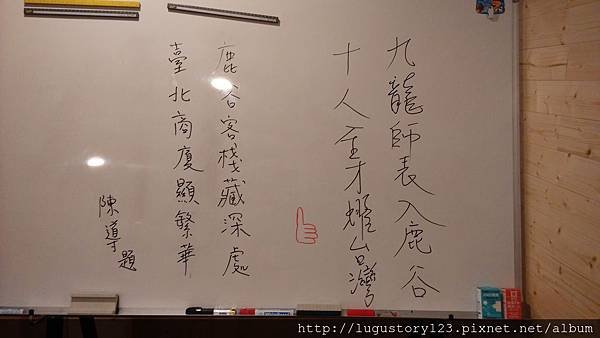 九龍師表入鹿谷
十人全才耀台灣
鹿谷客棧藏深處
臺北商廈顯繁華
陳導題
http://lugustory123.pixnet.net/album